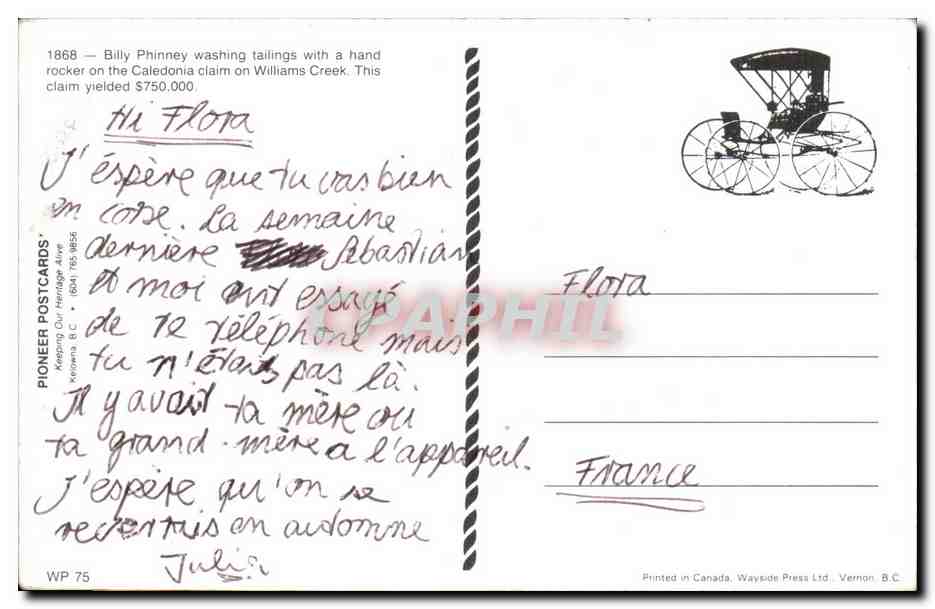 1868 — Billy Phinney washing tailings with a hand
rocker on the Caledonia claim on Williams Creek. This
claim yielded $750,000.
Hi Flora
J'éspère que tu vas bien
en corse. La semaine
dernière Sebastian
et moi ont essayé
de te téléphone mais
tu n'étais pas là.
Il y avait ta mère ou
ta grand-mère a l'appareil.
J'espère qu'on se
en automne
Julia
PIONEER POSTCARDS'
Keeping Our Heritage Alive
Kelowna, B.C. • (604) 765-9856
WP 75
CPAPHIL
Flora
France
Printed in Canada, Wayside Press Ltd., Vernon, B.C.